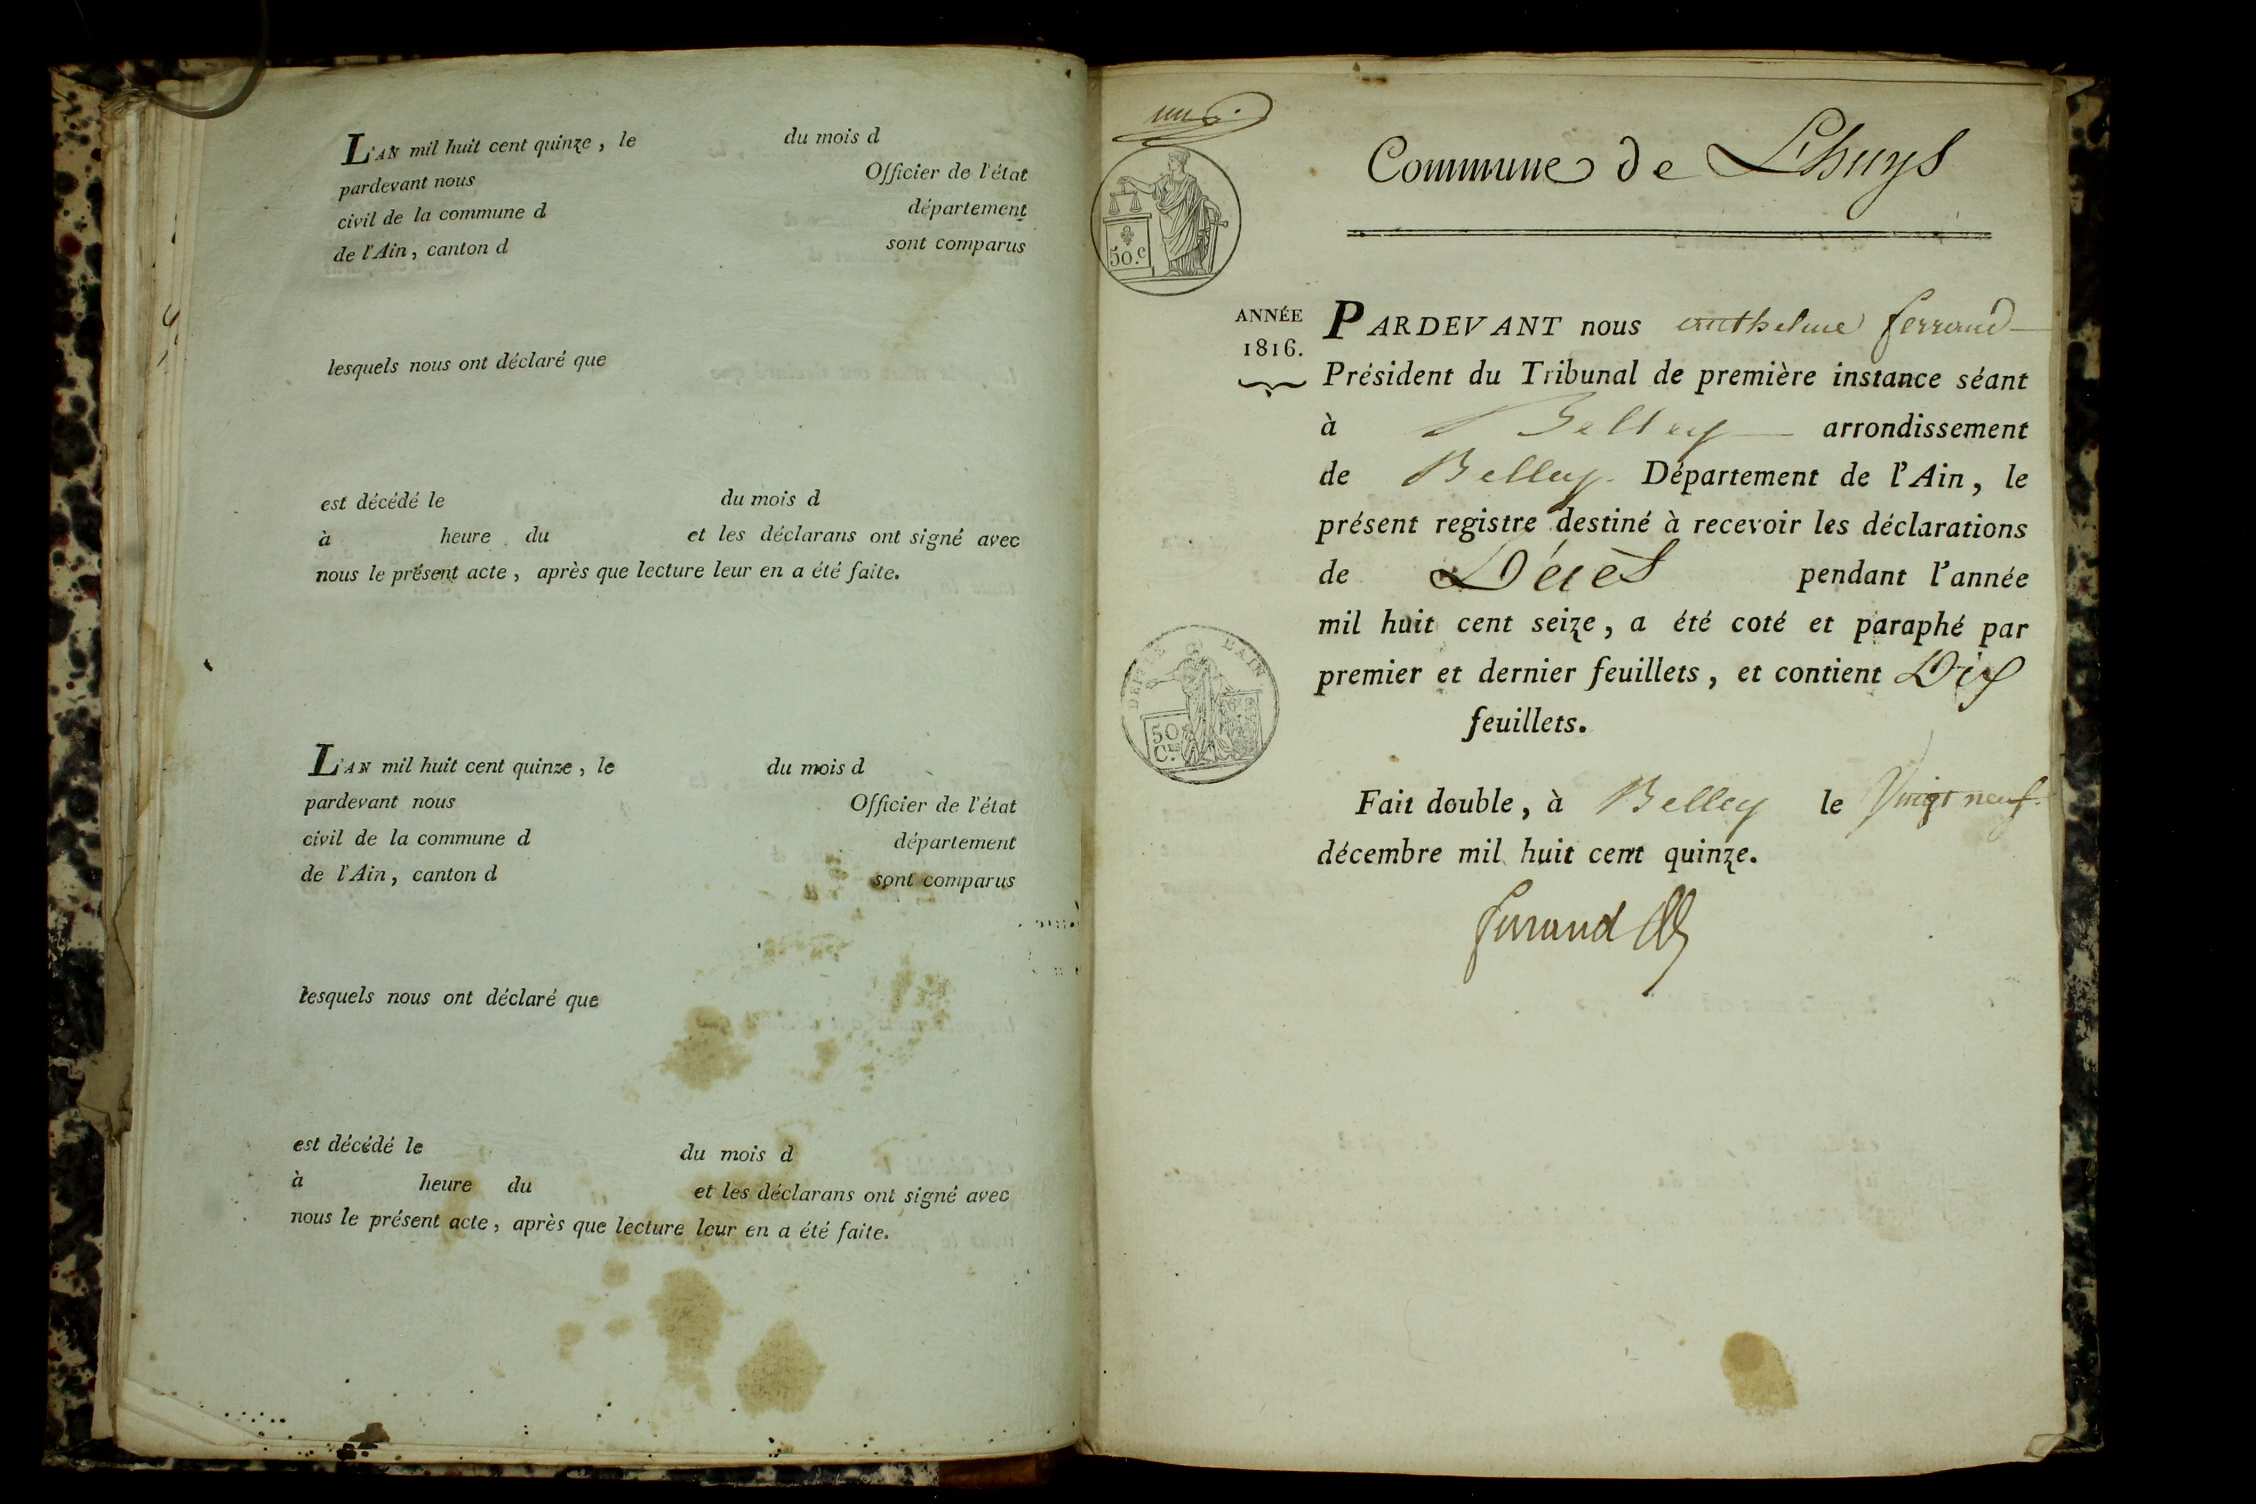 L'AN mil huit cent quinze, le du mois d
pardevant nous Officier de l'état
civil de la commune d département
de l'Ain, canton d sont comparus
lesquels nous ont déclaré que
est décédé le du mois d
à heure du et les déclarans ont signé avec
nous le présent acte, après que lecture leur en a été faite.
L'AN mil huit cent quinze, le du mois d
pardevant nous Officier de l'état
civil de la commune d département
de l'Ain, canton d sont comparus
lesquels nous ont déclaré que
est décédé le du mois d
à heure du et les déclarans ont signé avec
nous le présent acte, après que lecture leur en a été faite.
un
Commune de Lhuys
50.c
ANNÉE
1816.
PARDEVANT nous anthelme ferrand
Président du Tribunal de première instance séant
à Belley arrondissement
de Belley Département de l'Ain, le
présent registre destiné à recevoir les déclarations
de Décès pendant l'année
mil huit cent seize, a été coté et paraphé par
premier et dernier feuillets, et contient Dix
feuillets.
L'AIN
50
Cs
Fait double, à Belley le Vingt neuf
décembre mil huit cent quinze.
ferrand